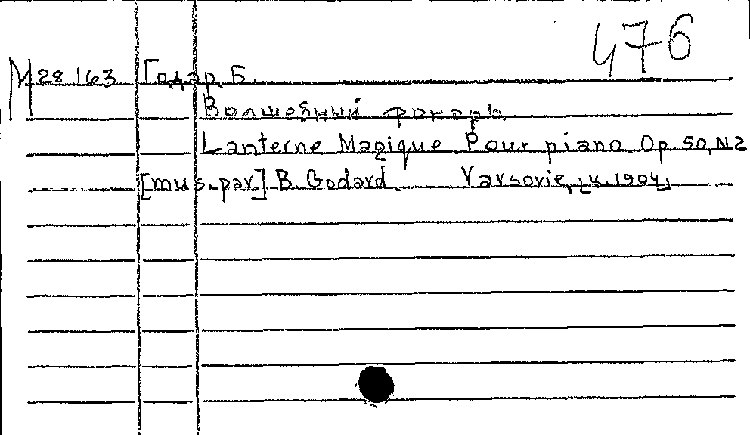 476
М 28.163 Годар, Б.
Волшебный фонарь
Lanterne Magique Pour piano Op. 50, N.2
[mus. par] B. Godard Varsovie, 1904,